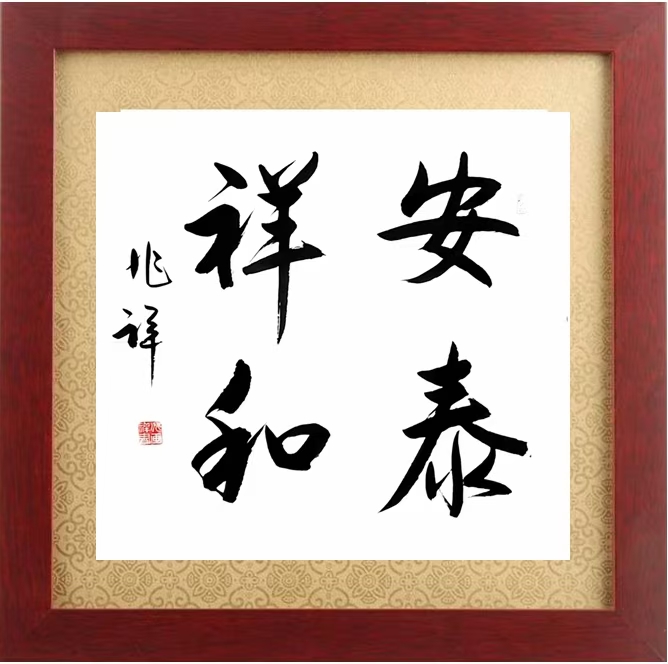 安泰
祥和
兆祥